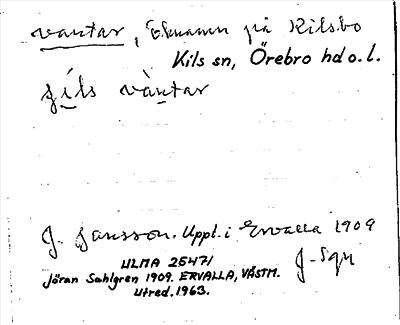 vantar, öknamn på Kilsbo
Kils sn, Örebro hd o. l.
vàntar
J. Jansson. Uppt. i Ervalla 1909
ULMA 25471
J-Sgn
Jöran Sahlgren 1909. ERVALLA, VÄSTM.
Utred. 1963.